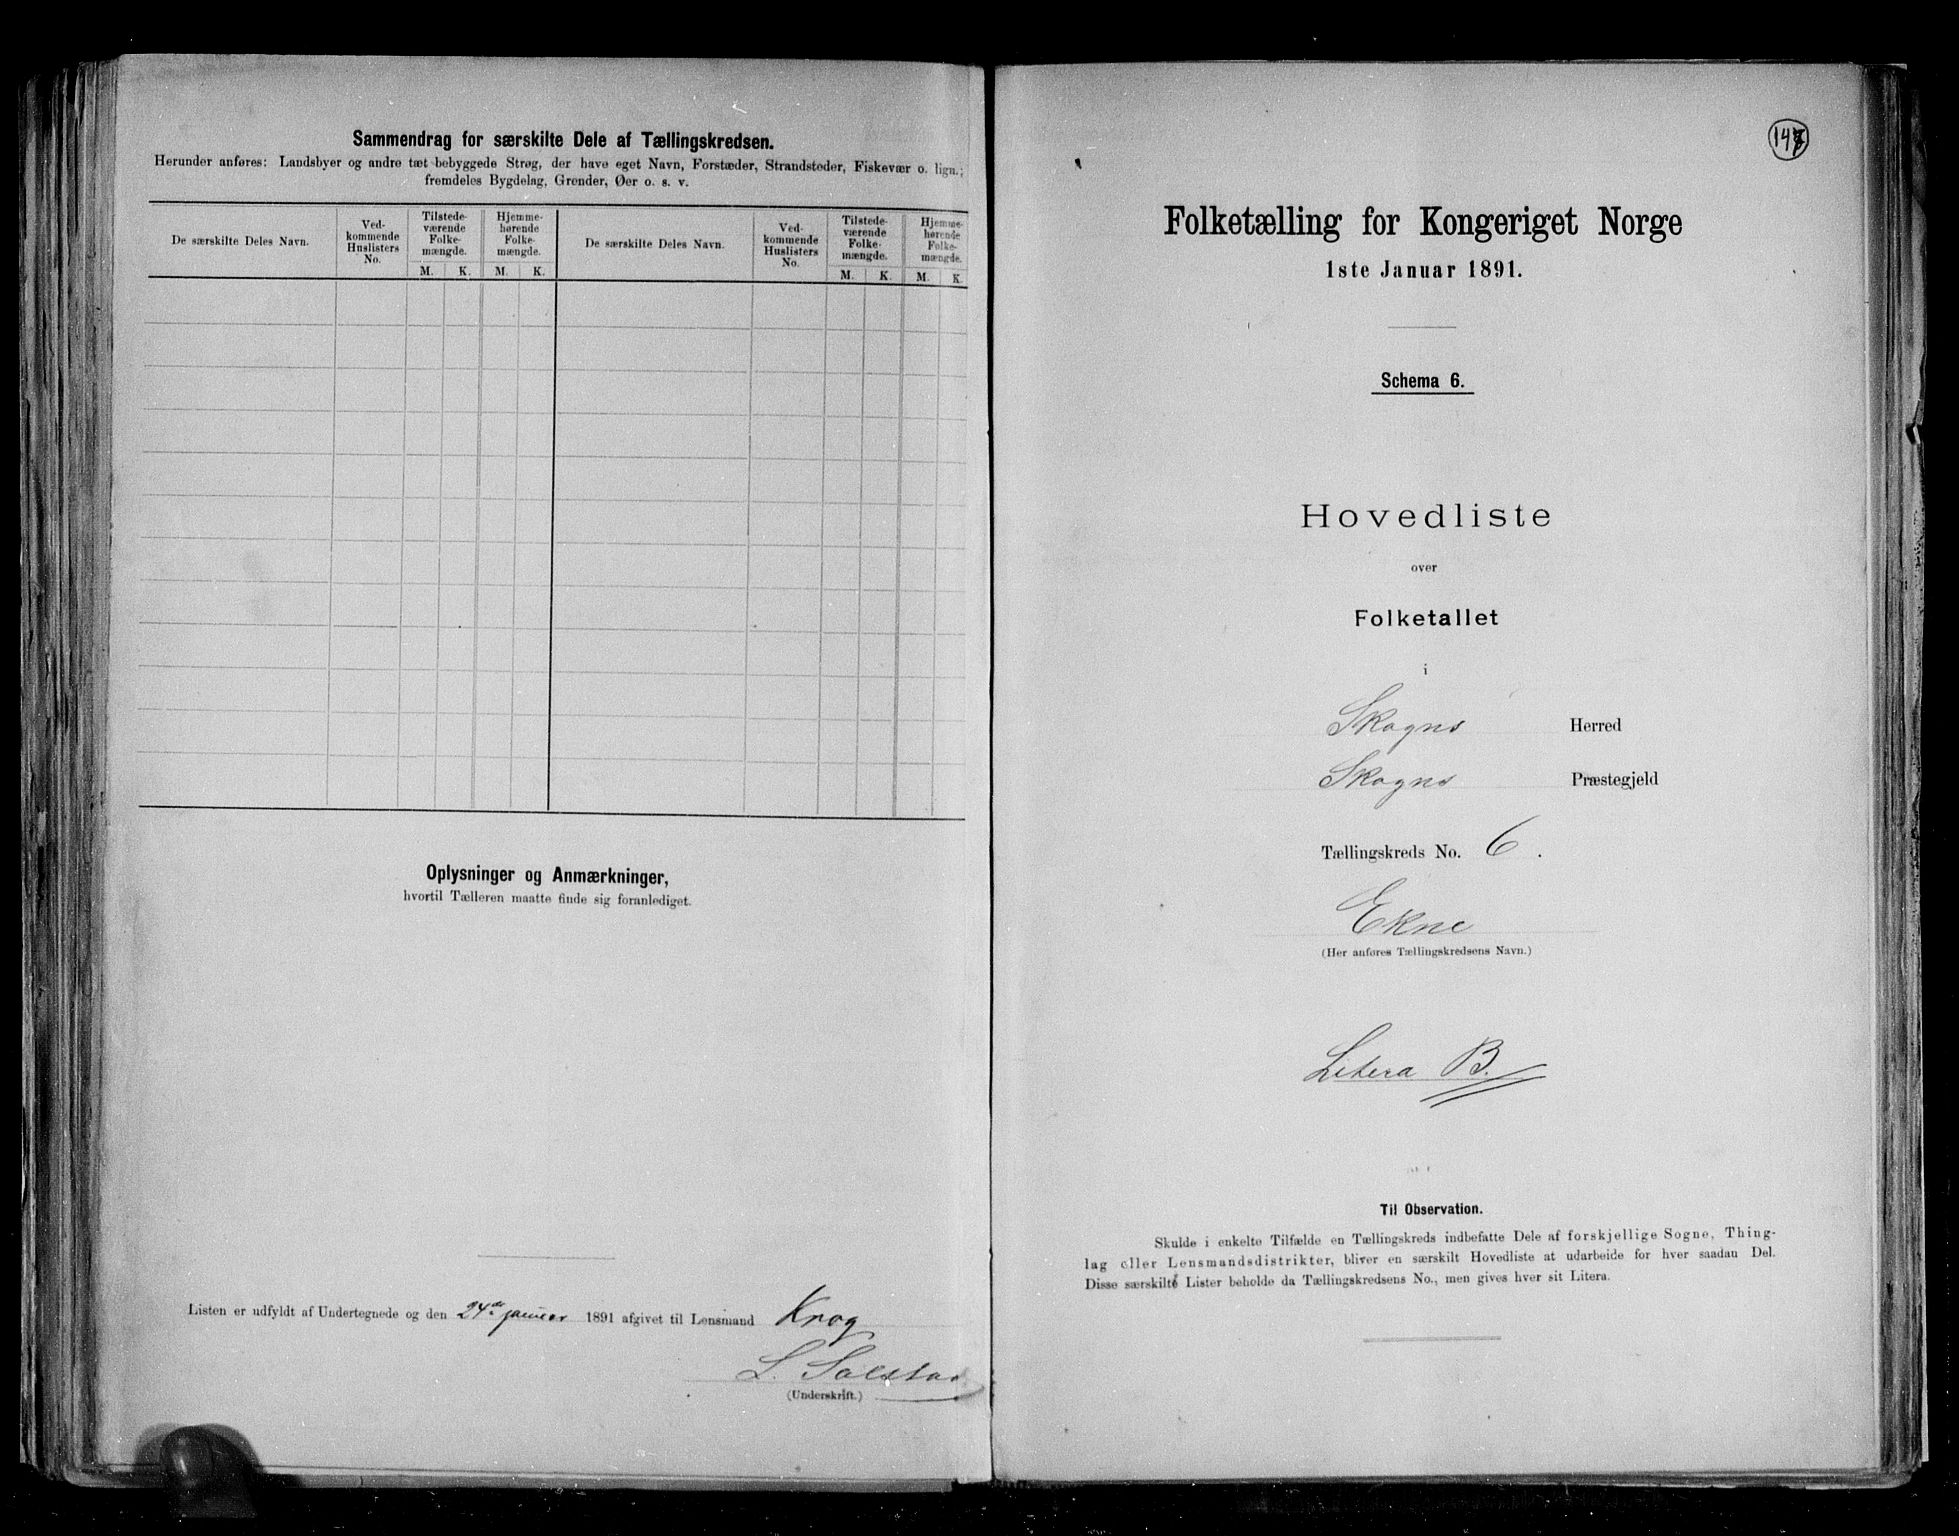 Sammendrag for særskilte Dele af Tællingskredsen.
Herunder anføres: Landsbyer og andre tæt bebyggede Strøg, der have eget Navn, Forstæder, Strandsteder, Fiskevær o. lign.;
fremdeles Bygdelag, Grender, Øer o. s. v.
De særskilte Deles Navn.
Ved-
kommende
Huslisters
No.
Tilstede-
værende
Folke-
mængde.
M. K.
Hjemme-
hørende
Folke-
mængde.
M. K.
De særskilte Deles Navn.
Ved-
kommende
Huslisters
No.
Tilstede-
værende
Folke-
mængde.
M. K.
Hjemme-
hørende
Folke-
mængde.
M. K.
Oplysninger og Anmærkninger,
hvortil Tælleren maatte finde sig foranlediget.
Listen er udfyldt af Undertegnede og den 24de januar 1891 afgivet til Lensmand Krog
L. Salstad
(Underskrift.)
Folketælling for Kongeriget Norge
1ste Januar 1891.
Schema 6.
Hovedliste
over
Folketallet
i
Skogns Herred
Skogns Præstegjeld
Tællingskreds No. 6.
Ekne
(Her anføres Tællingskredsens Navn.)
Litera B.
Til Observation.
Skulde i enkelte Tilfælde en Tællingskreds indbefatte Dele af forskjellige Sogne, Thing-
lag eller Lensmandsdistrikter, bliver en særskilt Hovedliste at udarbeide for hver saadan Del.
Disse særskilte Lister beholde da Tællingskredsens No., men gives hver sit Litera.